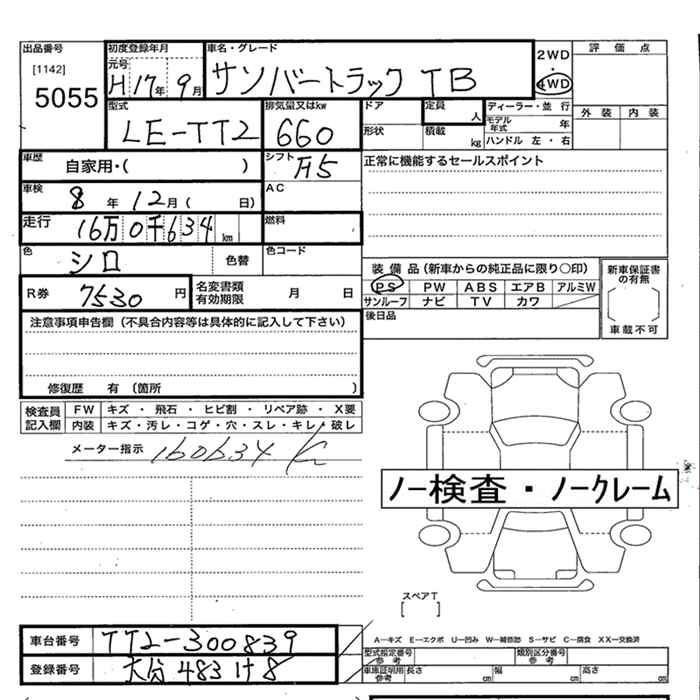 出品番号 初度登録年月 車名・グレード 2WD 評価点
[1142] 元号 ・
5055 H17年9月 サンバートラック TB 4WD
型式 排気量又はkw ドア 定員 人 ディーラー・並行 外装 内装
LE-TT2 660 形状 積載 kg モデル年式 年
ハンドル 左・右
車歴 自家用・( ) シフト F5 正常に機能するセールスポイント
車検 8年12月( 日) AC
走行 16万0千634km 燃料
色 シロ 色替 色コード
装備品(新車からの純正品に限り○印) 新車保証書の有無
R券 7530円 名変書類有効期限 月 日 PS PW ABS エアB アルミW
サンルーフ ナビ TV カワ 車載不可
注意事項申告欄(不具合内容等は具体的に記入して下さい) 後日品
修復歴 有 (箇所 )
検査員記入欄 FW キズ・飛石・ヒビ割・リペア跡・X要
内装 キズ・汚レ・コゲ・穴・スレ・キレ・破レ
メーター指示 160634 K
ノー検査・ノークレーム
スペアT
[ ]
車台番号 TT2-300839 A-キズ E-エクボ U-凹み W-補修跡 S-サビ C-腐食 XX-交換済
型式指定番号 参考 類別区分番号 参考
登録番号 大分 483 け 8 車庫証明用 参考 長さ cm 幅 cm 高さ cm